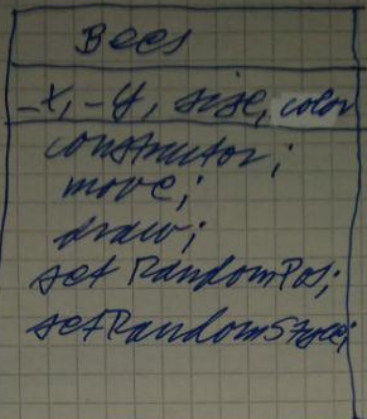 Bees
_x, _y, size, color
constructor;
move;
draw;
set RandomPos;
setRandomStyle;